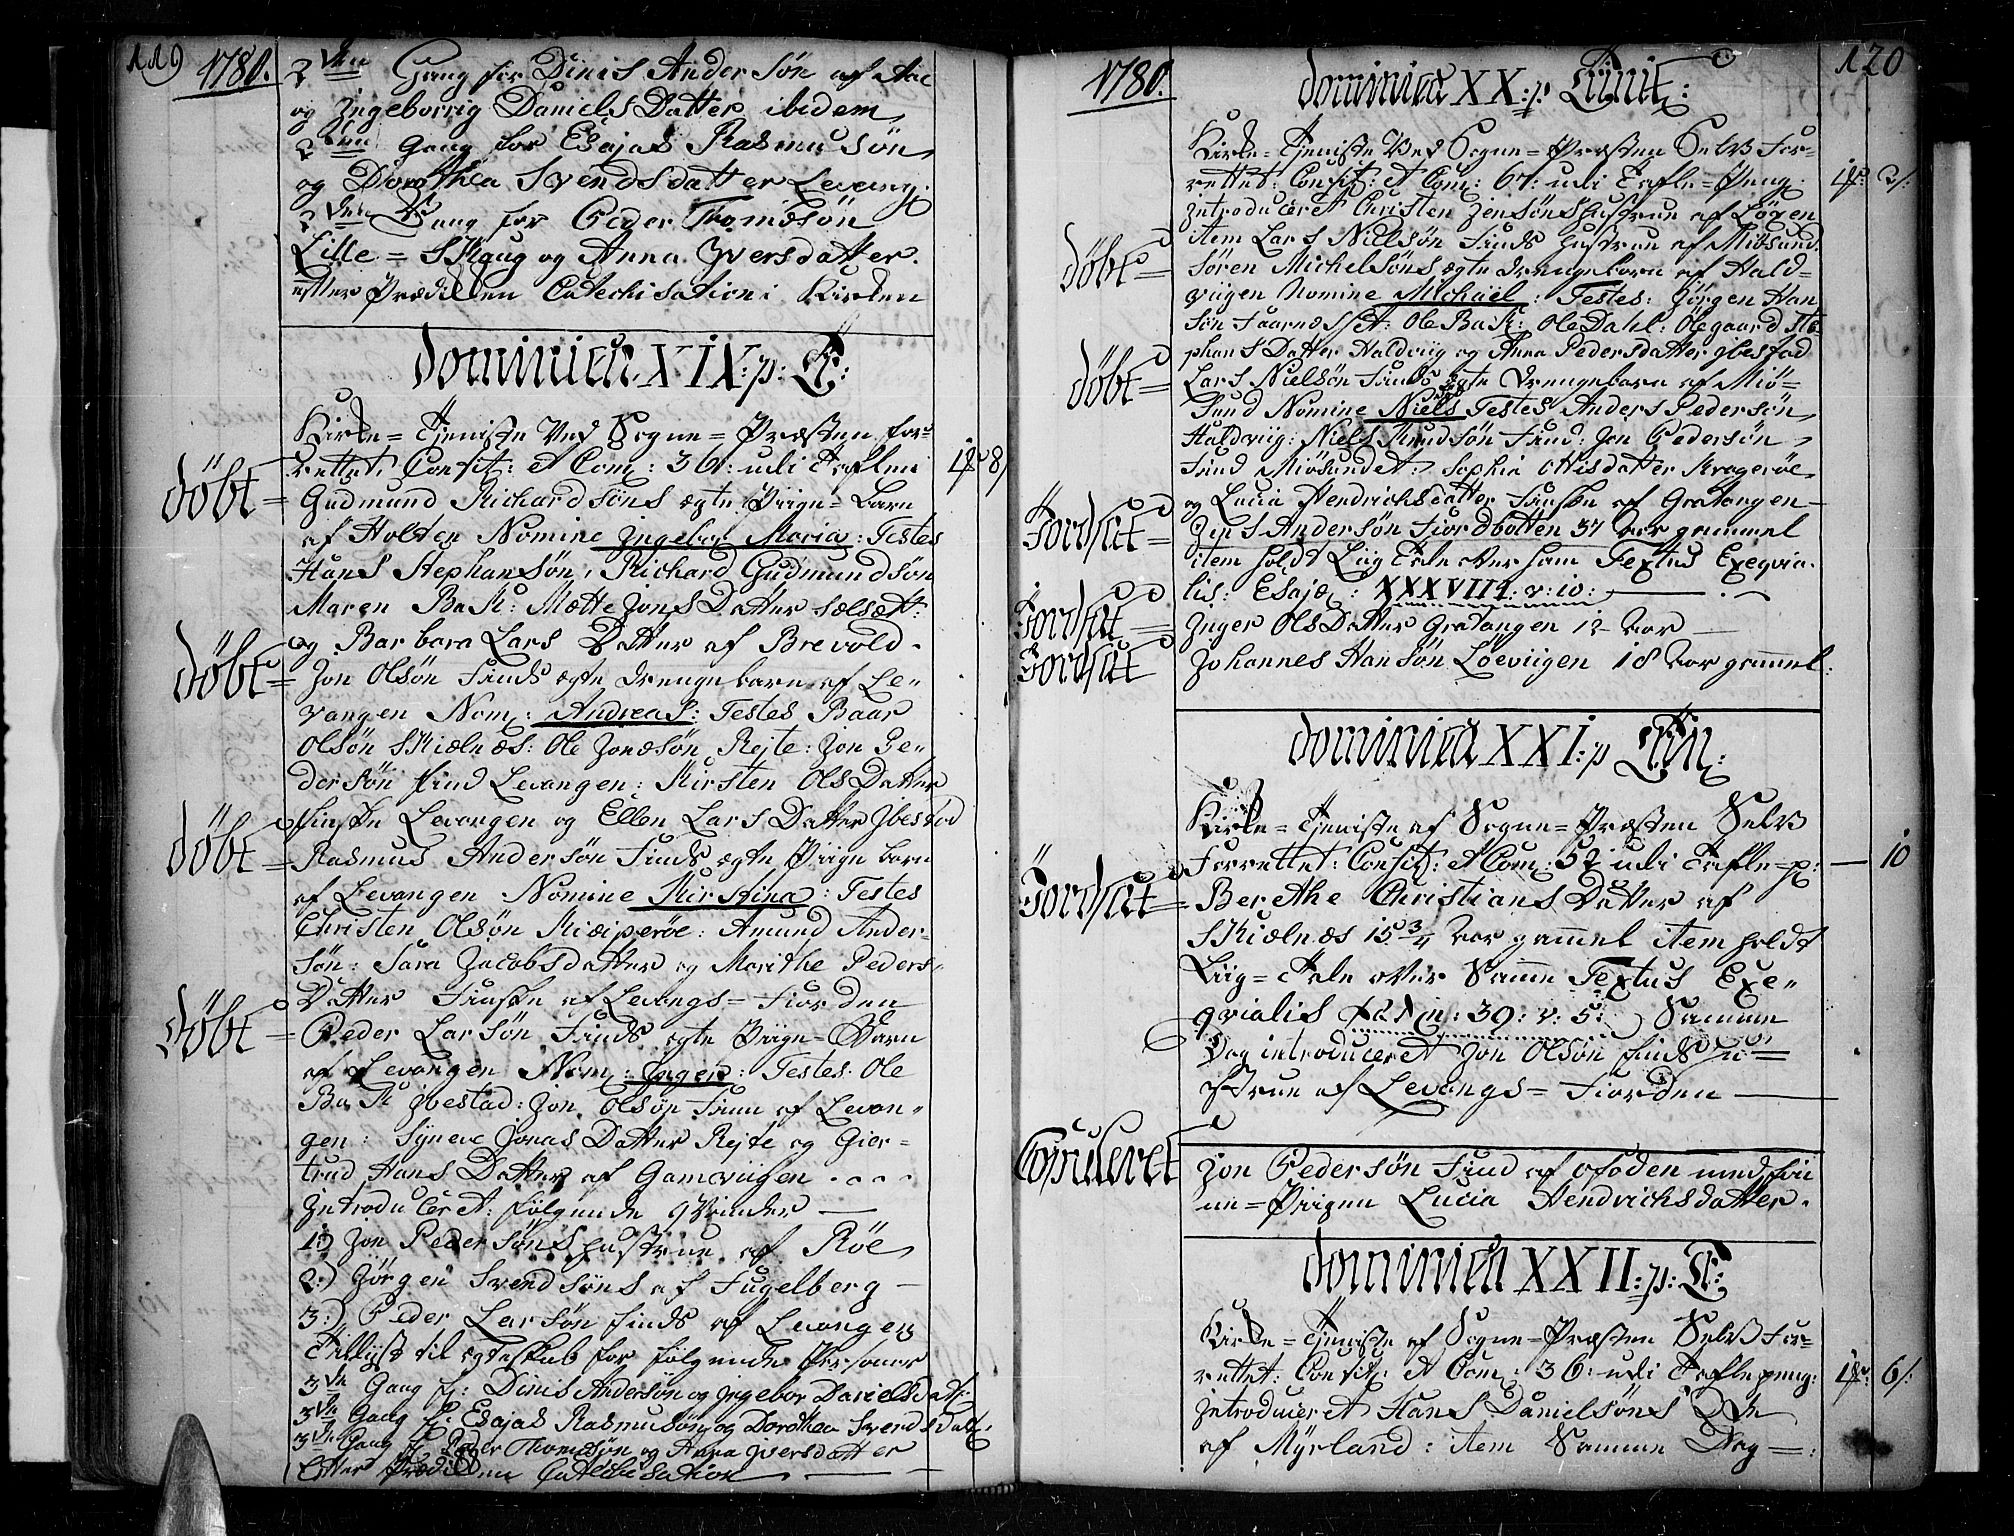 119
1780.
2den Gang for Dinis Andersön af Aae
og Ingeborrig Daniels Datter ibidem
2den Gang for Esajas Rasmusön
og Dorothea Svendsdatter Levang:
2den Gang for Peder Tromesön
Lille = Skaug og Anna Iversdatter.
efter Prædiken Catechisation i Kirken
dominica XIX: p: T:
Kirke = Tjeniste Ved Sogne = Præsten for=
rettet, Confit: et Com: 36: udi Taflen 8
döbt = Gudmund Richardsöns ægte Piige = Barn
af Holten Nomine Ingebor Maria: Testes
Hans Stephansön, Richard Gudmundsön
Maren Bask: Mætte Jons Datter
og Barbara Lars Datter af Brevold.
döbt = Jon Olsön Finds ægte drengebarn af Le=
vangen Nom: Andreas: Testes Baar
Olsön Skielnæs: Ole Jonæsön Rejte: Jon Pe=
dersön find Levangen: Kirsten Ols Datter
finske Levangen og Ellen Lars Datter Ibestad
döbt = Rasmus Andersön Finds ægte Piige barn
af Levangen Nomine Kirstina: Testes
Christen Olsön Kræiperöe: Amund Ander=
sön: Sara Jacobsdatter og Marithe Peders=
Datter Finske af Levangs = Fiorden
döbt = Peder Larsön Finds ægte Piige = Barn
af Levangen Nom: Inger: Testes: Ole
Bask Ibestad: Jon Olsön Find af Levan=
gen: Synev Jonas Datter Rejte og Gier=
trud Hans Datter af Gamviigen
Introduceret: fölgende qvinder
1:) Jon Pedersöns hustrue af Röe
2:) Jörgen Svendsöns af Fugelberg
3:) Peder Larsön finds af Levangen
Tillyst til ægteskab for fölgende Personer
3de Gang f: Dinis Andersön og Ingebor Danielsdatt:
3de Gang f: Esajas Rasmusön og Dorothea Svendsdatt:
3de Gang f: Peder Thomesön og Anna Iversdatter
Efter Prædiken Catechisation
1780.
120
dominica XX: p: Trinit:
Kirke = Tjeniste Ved Sogne = Præsten Selv For=
rettet: Confit: et Com: 67: udi Tafle = Peng: 2
Introduceret Christen Jensöns Hustrue af Lögen
item Lars Nielsön Finds hustrue af Miösund
döbt = Sören Michelsöns ægte drengebarn af Hald=
viigen Nomine Michael: Testes: Jörgen Han
sön Faarnæsset: Ole Bask: Ole Dahl: Olegaard Ste
phans Datter Haldviig og Anna Pedersdatter Ibestad
döbt = Lars Nielsön Finds ægte drengebarn af Miö=
sund Nomine Niels Testes Anders Pedersön
Haldviig: Niels Knudsön Find: Jon Pedersön
Find Miösundet: Sophia Ottisdatter Krageröe
og Lucia Hendrichsdatter Finske af Gratangen
Jordsat = Jens Andersön Fiordbotten 37 Aar gammel
item holdt Liig Tale over ham Textus Exeqvia
lis: Esajæ: XXXVIII: v: 10:
Jordsat = Inger Ols Datter Gratangen 12 Aar
Jordsat Johannes Hansön Löeviigen 18 Aar gammel:
dominica XXI: p Trin:
Kirke = Tjeniste af Sogne = Præsten Selv
Forrettet: Confit: et Com: 52 udi Tafle = p: 10
Jordsat = Berethe Christians Datter af
Skielnæs 15 3/4 Aar gammel item holdt
Liig = Tale over Samme Textus Exe=
qvialis Psalm: 39: v: 5: Samme
Dag introduceret Jon Olsön finds Hu=
strue af Levangs = Fiorden
Copuleret Jon Pedersön Find af Ofoden med fin
ne = Piigen Lucia Hendrichsdatter.
dominica XXII: p: T:
Kirke = Tjeniste af Sogne = Præsten Selv For=
rettet: Confit: et Com: 36: udi Taflepeng: 6
Introduceret Hans Danielsöns
af Myrland: item Samme Dag =: